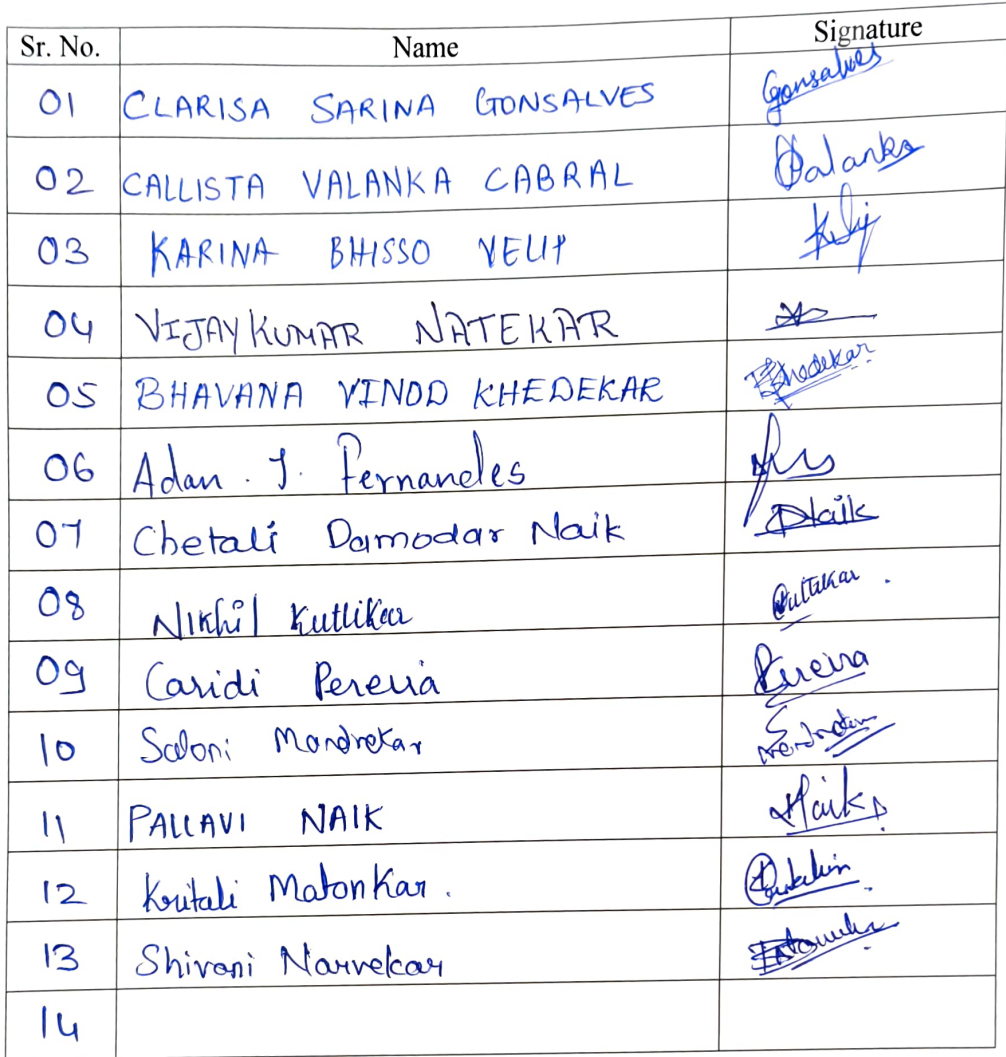 Sr. No. Name Signature
01 CLARISA SARINA GONSALVES Gonsalves
02 CALLISTA VALANKA CABRAL Valanka
03 KARINA BHISSO VELIP
04 VIJAYKUMAR NATEKAR
05 BHAVANA VINOD KHEDEKAR Khedekar
06 Adan . J. Fernandes
07 Chetali Damodar Naik DNaik
08 Nikhil Kutlikar
09 Caridi Pereira Pereira
10 Saloni Mandrekar
11 PALLAVI NAIK Naik
12 Krutali Matonkar .
13 Shivani Narvekar
14